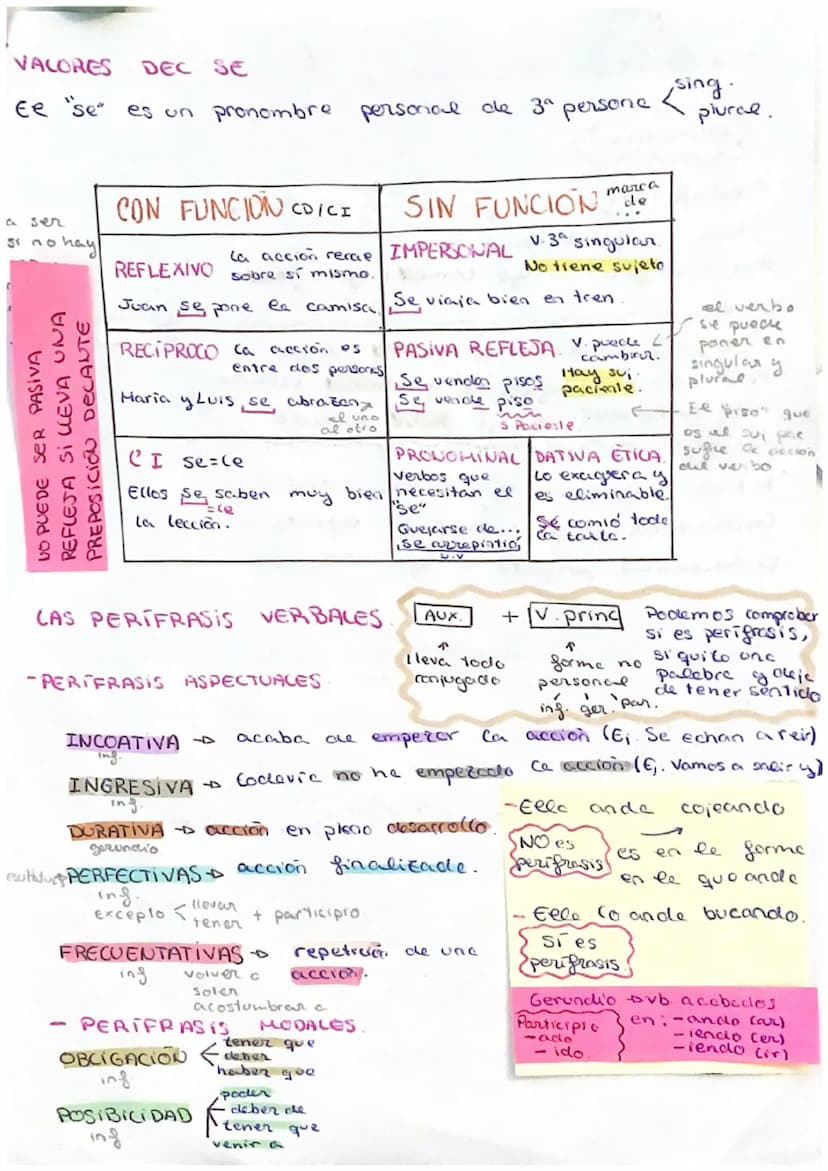 VALORES DEL SE
El "se" es un pronombre personal de 3ª persona < sing.
plural.
CON FUNCIÓN CD/CI
SIN FUNCIÓN marca de ...
a ser
si no hay
REFLEXIVO La acción recae
sobre sí mismo.
Juan se pone la camisa
IMPERSONAL V. 3ª singular.
No tiene sujeto
Se viaja bien en tren.
RECÍPROCO La acción es
entre dos personas
María y Luis se abrazan
el uno
al otro
PASIVA REFLEJA. V. puede
cambiar.
Hay suj.
paciente.
Se venden pisos
Se vende piso
S Paciente
el verbo
se puede
poner en
singular y
plural
El "piso" que
es el suj pac
sufre la acción
del verbo
CI se=le
Ellos se saben muy bien
=le
la lección.
PRONOMINAL
verbos que
necesitan el
"se"
Quejarse de...
Se arrepintió
DATIVA ÉTICA
Lo exagera y
es eliminable.
Sé comió toda
la tarta.
NO PUEDE SER PASIVA
REFLEJA SI LLEVA UNA
PREPOSICIÓN DELANTE
LAS PERÍFRASIS VERBALES.
AUX. + V. princ
lleva todo
conjugado
forma no
personal
inf. ger. par.
Podemos comprobar
si es perífrasis,
si quito una
palabra y deja
de tener sentido
- PERÍFRASIS ASPECTUALES.
INCOATIVA → acaba de empezar la acción (Ej. Se echan a reir)
inf.
INGRESIVA → todavía no ha empezado la acción (Ej. Vamos a salir ya)
inf.
DURATIVA → acción en pleno desarrollo.
gerundio
PERFECTIVAS → acción finalizada.
inf.
excepto < llevar
tener + participio
FRECUENTATIVAS → repetición de una
acción.
inf volver a
soler
acostumbrar a
- PERÍFRASIS MODALES.
OBLIGACIÓN
inf
tener que
deber
haber que
POSIBILIDAD
inf
poder
deber de
tener que
venir a
- Ella anda cojeando
NO es
perífrasis
es en la forma
en la que anda
- Ella lo anda bucando.
Sí es
perífrasis.
Gerundio → vb. acabados
en: -ando (ar)
-iendo (er)
-iendo (ir)
Participio
-ado
-ido.